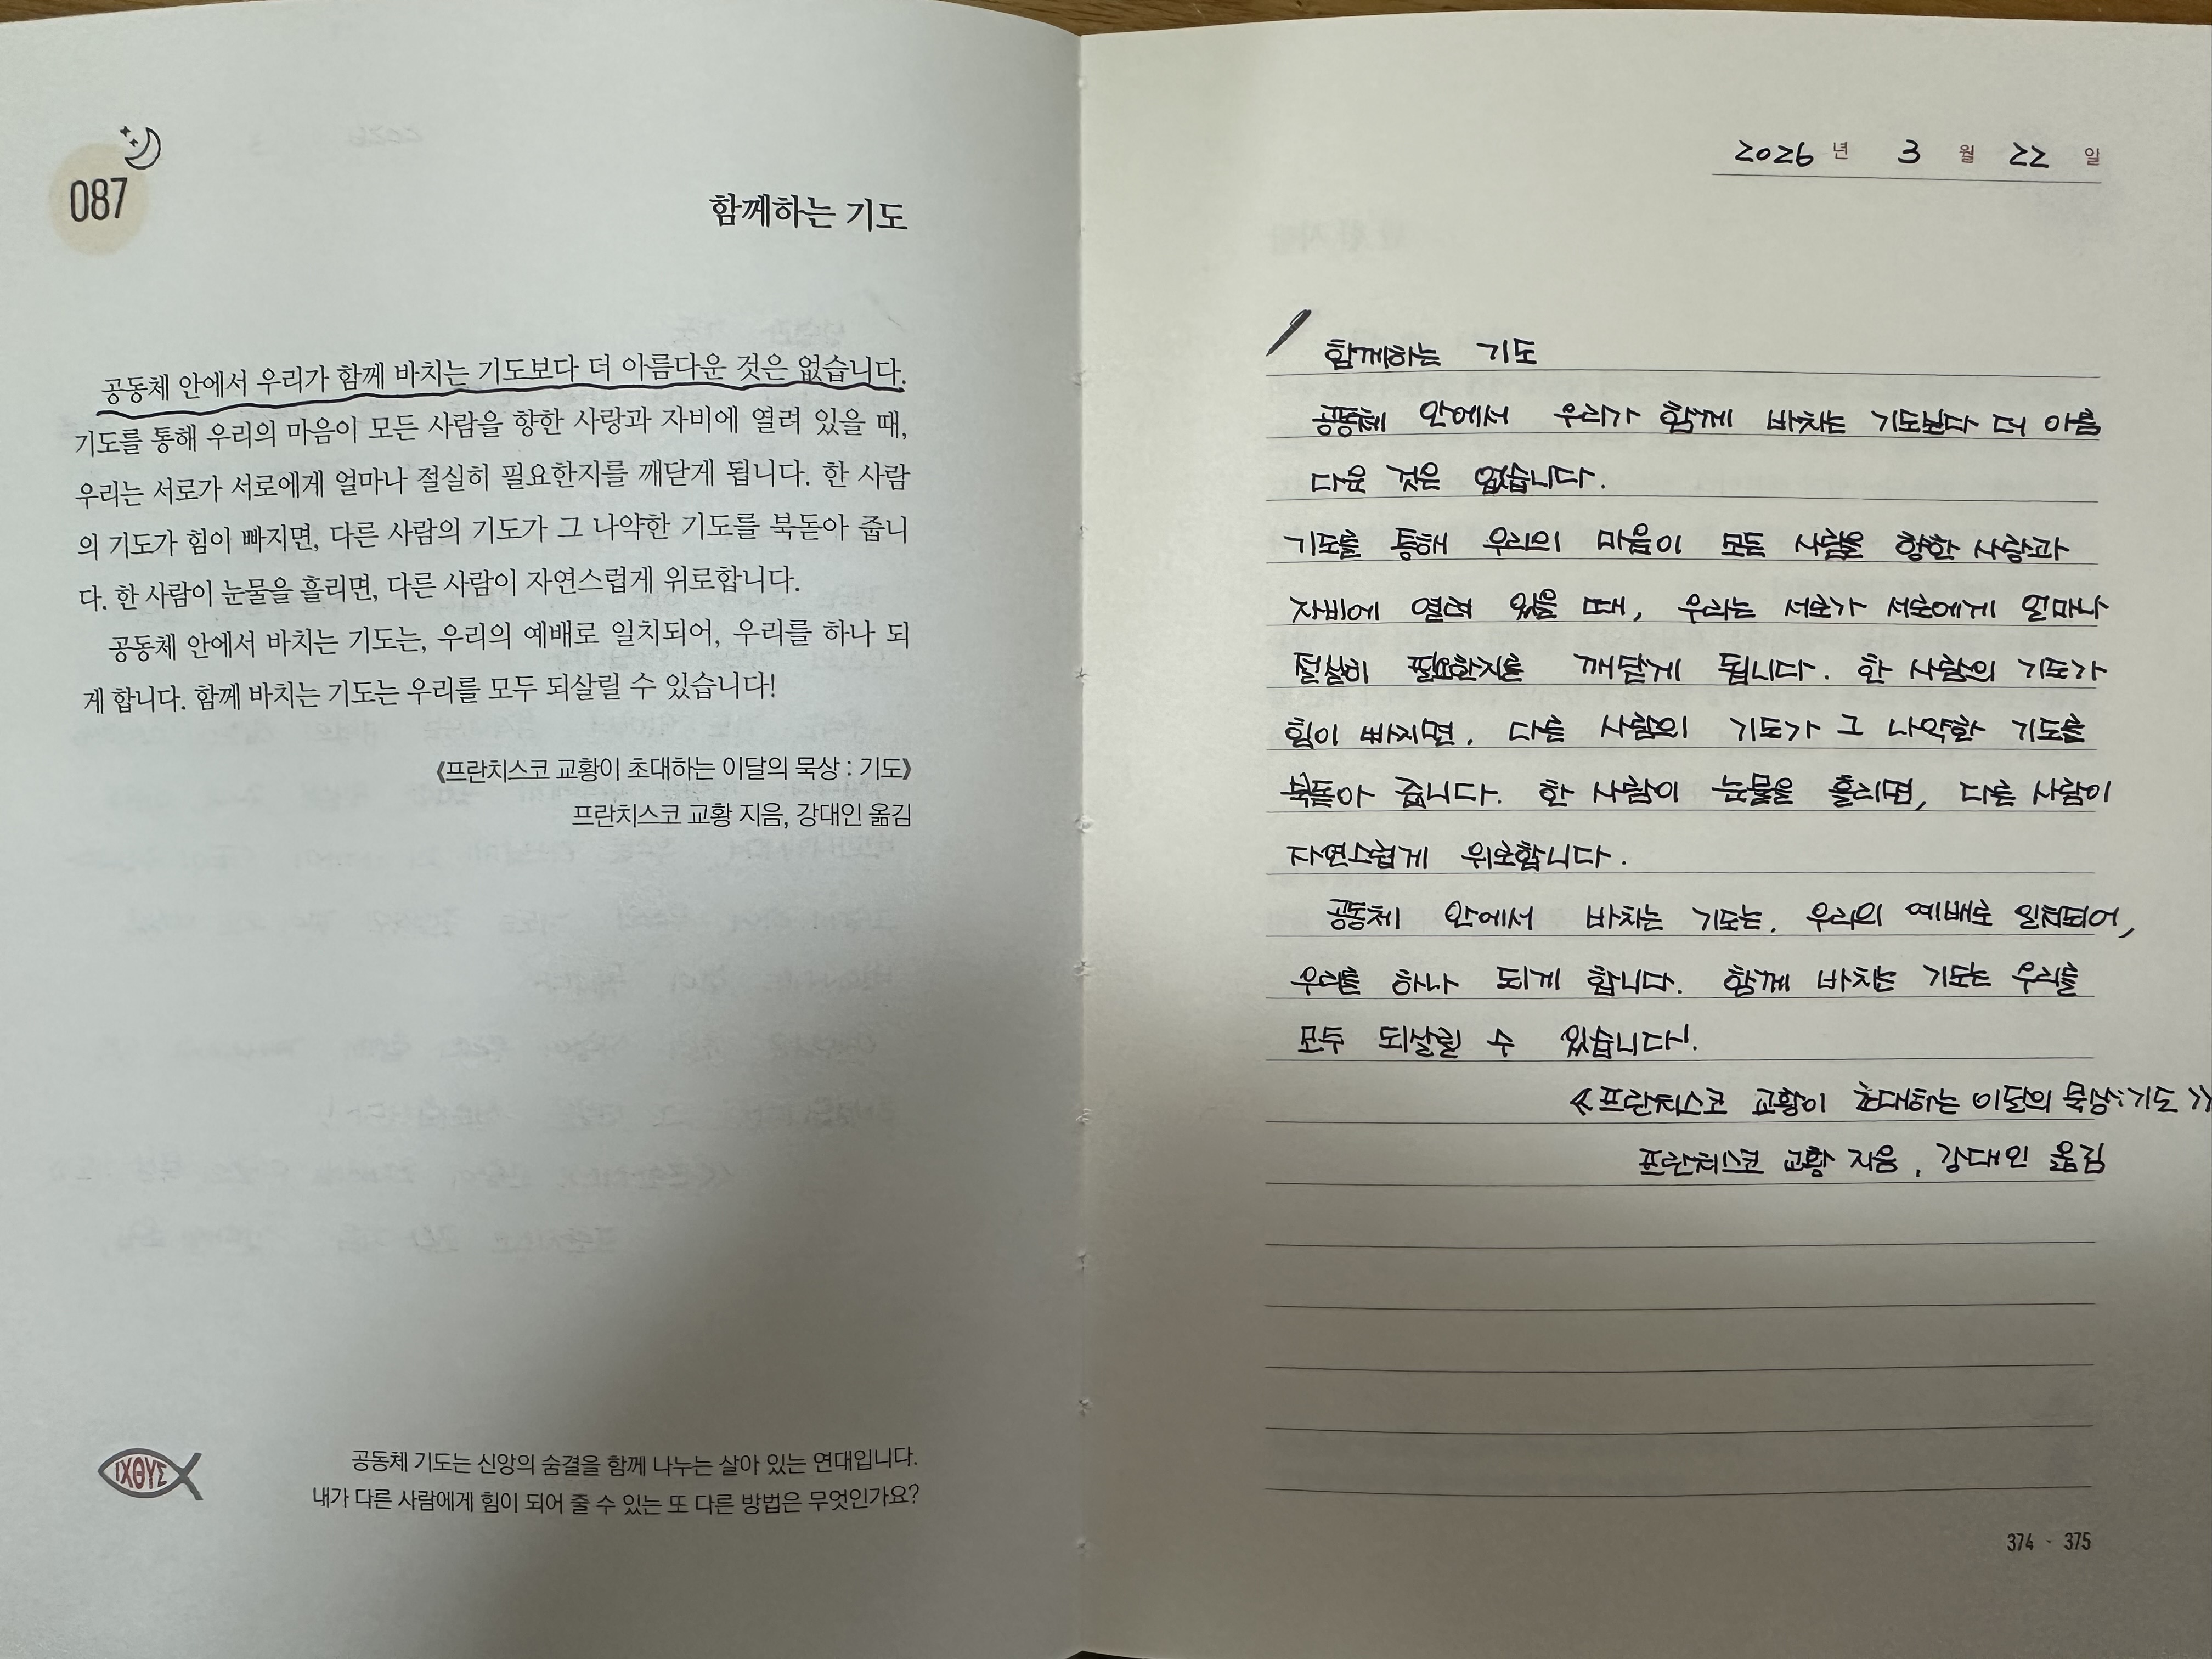 087
함께하는 기도
공동체 안에서 우리가 함께 바치는 기도보다 더 아름다운 것은 없습니다.
기도를 통해 우리의 마음이 모든 사람을 향한 사랑과 자비에 열려 있을 때,
우리는 서로가 서로에게 얼마나 절실히 필요한지를 깨닫게 됩니다. 한 사람
의 기도가 힘이 빠지면, 다른 사람의 기도가 그 나약한 기도를 북돋아 줍니
다. 한 사람이 눈물을 흘리면, 다른 사람이 자연스럽게 위로합니다.
공동체 안에서 바치는 기도는, 우리의 예배로 일치되어, 우리를 하나 되
게 합니다. 함께 바치는 기도는 우리를 모두 되살릴 수 있습니다!
《프란치스코 교황이 초대하는 이달의 묵상 : 기도》
프란치스코 교황 지음, 강대인 옮김
ΙΧΘΥΣ
공동체 기도는 신앙의 숨결을 함께 나누는 살아 있는 연대입니다.
내가 다른 사람에게 힘이 되어 줄 수 있는 또 다른 방법은 무엇인가요?
2026 년 3 월 22 일
함께하는 기도
공동체 안에서 우리가 함께 바치는 기도보다 더 아름
다운 것은 없습니다.
기도를 통해 우리의 마음이 모든 사람을 향한 사랑과
자비에 열려 있을 때, 우리는 서로가 서로에게 얼마나
절실히 필요한지를 깨닫게 됩니다. 한 사람의 기도가
힘이 빠지면, 다른 사람의 기도가 그 나약한 기도를
북돋아 줍니다. 한 사람이 눈물을 흘리면, 다른 사람이
자연스럽게 위로합니다.
공동체 안에서 바치는 기도는, 우리의 예배로 일치되어,
우리를 하나 되게 합니다. 함께 바치는 기도는 우리를
모두 되살릴 수 있습니다!.
《프란치스코 교황이 초대하는 이달의 묵상:기도》
프란치스코 교황 지음, 강대인 옮김
374 - 375